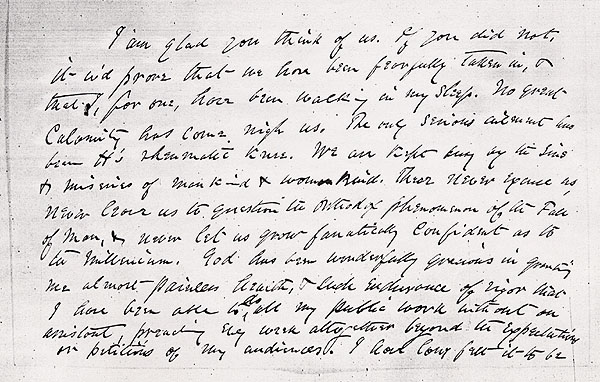 I am glad you think of us. If you did not,
it w'd prove that we have been fearfully taken in, &
that I, for one, have been walking in my sleep. No great
Calamity has come nigh us. The only serious ailment has
been H's rheumatic knee. We are kept busy by the sins
& miseries of mankind & womankind. These never excuse us,
never leave us to question the orthodox phenomenon of the Fall
of Man, & never let us grow fanatically confident as to
the Millenium. God has been wonderfully gracious in granting
me almost painless health, & such endurance of vigor that
I have been able to do all my public work without an
assistant, preaching every week altogether beyond the expectations
or petitions of my audiences. I have long felt it to be